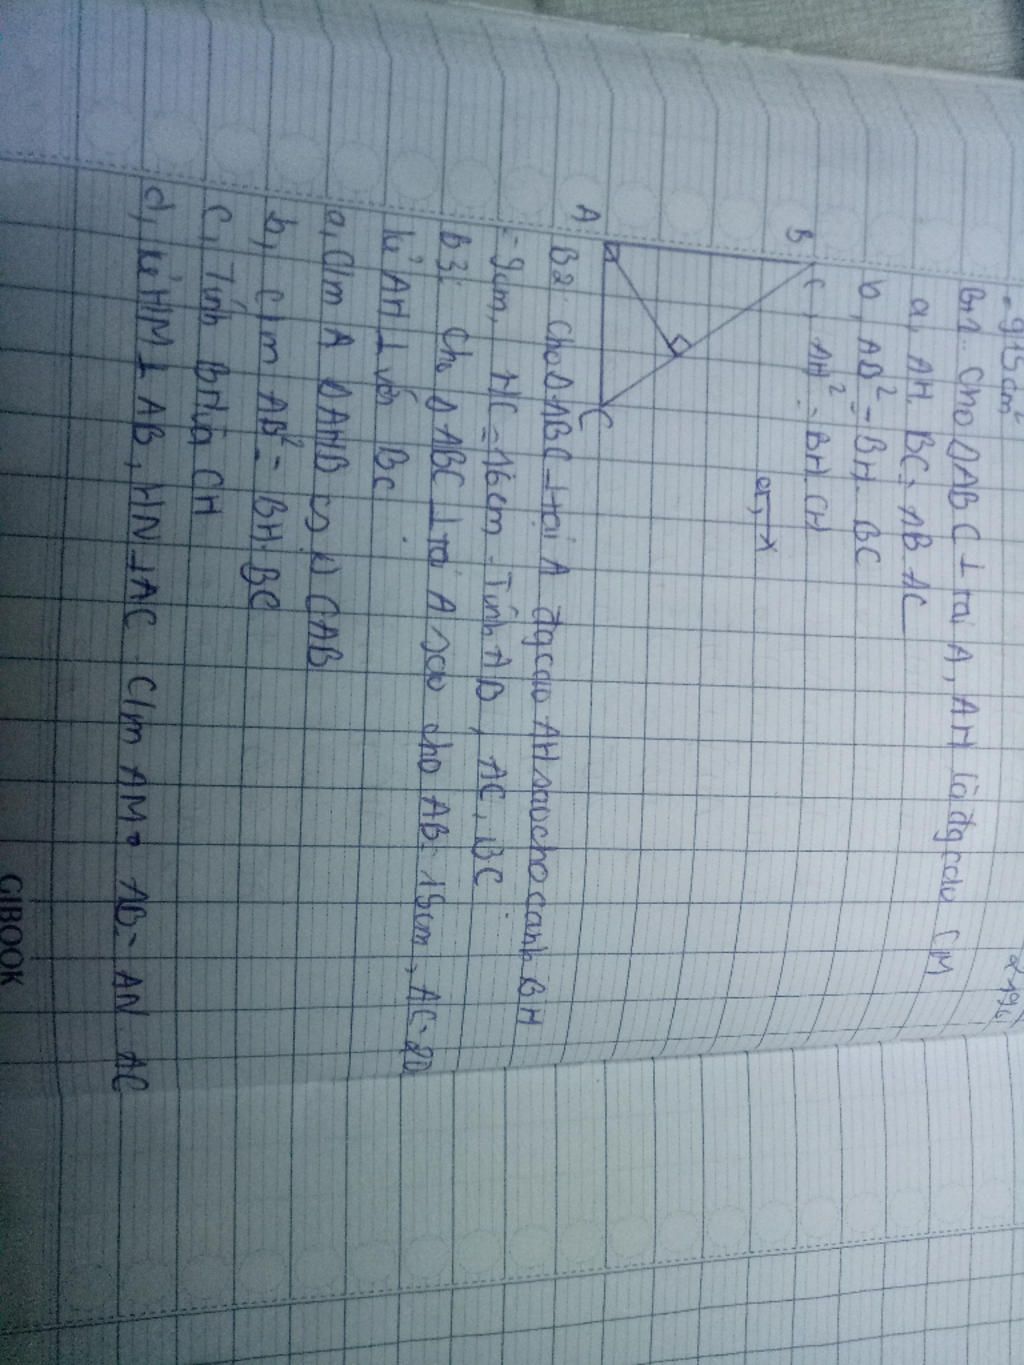 = 915 cm²
Bài 1. Cho ΔABC ⊥ tại A, AH là đgcao CM
a, AH. BC = AB. AC
b, AB² = BH. BC
c, AH² = BH. CH
B
A
C
B2: Cho ΔABC ⊥ tại A đgcao AH sao cho cạnh BH
= 9cm, HC = 16cm - Tính AB, AC, BC
B3: Cho ΔABC ⊥ tại A sao cho AB = 15cm, AC = 20
kẻ AH ⊥ với BC
a, C/m A ΔAHB ∽ CAB
b, C/m AB² = BH. BC
c, Tính BH và CH
d, kẻ HM ⊥ AB, HN ⊥ AC C/m AM. AB = AN. AC
GIBOOK